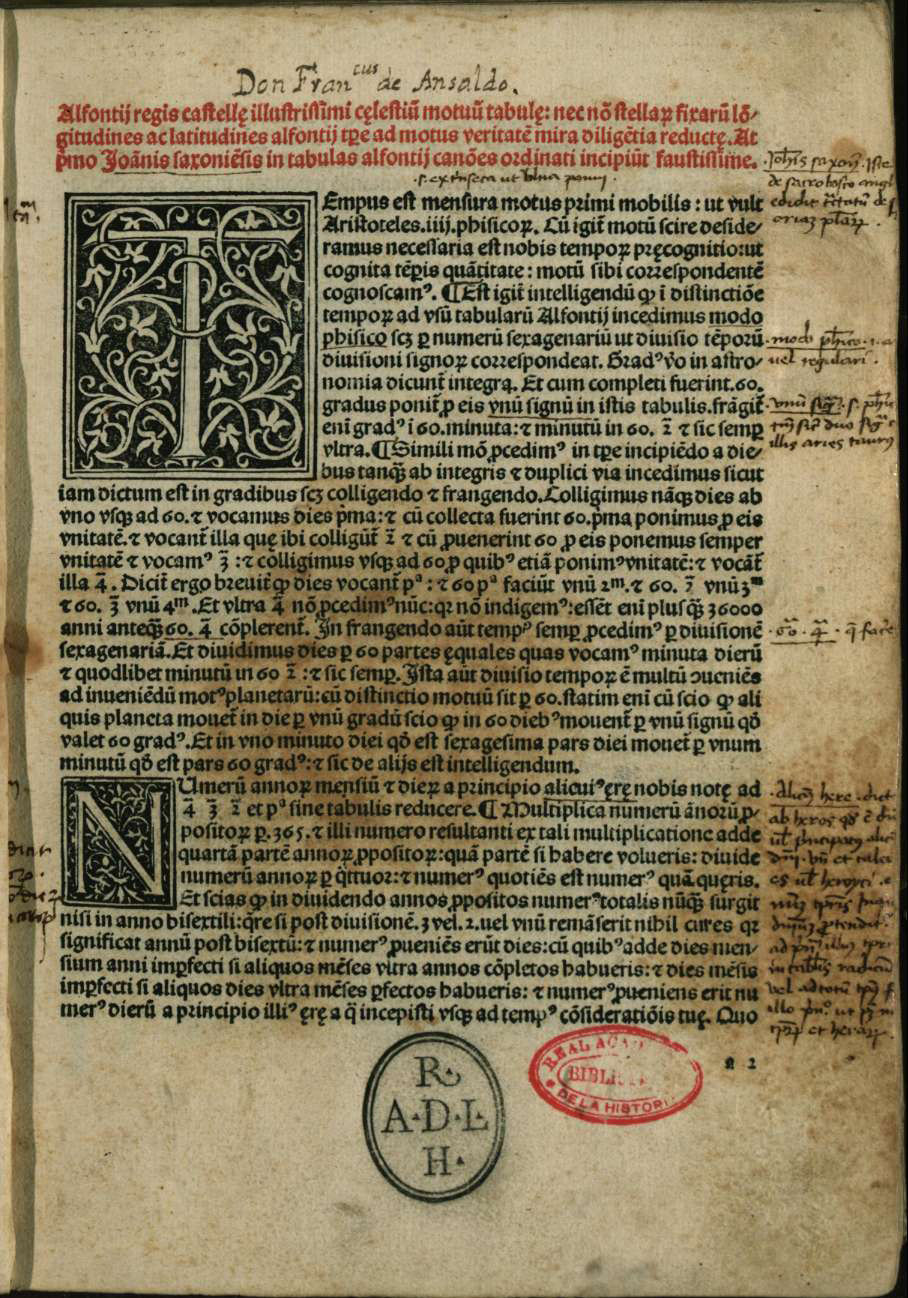 Don Fran^cus de Ansaldo.
Alfontij regis castellę illustrissimi cęlestiũ motuũ tabulę: nec nõ stellaꝝ fixarũ lõ-
gitudines ac latitudines alfontij tꝑe ad motus veritatẽ mira diligẽtia reductę. At
p̃mo Joãnis saxoniẽsis in tabulas alfontij canões ordinati incipiũt faustissime.
TEmpus est mensura motus primi mobilis: ut vult
Aristoteles.iiij.phisicoꝝ. Cũ igit̃ motũ scire deside-
ramus necessaria est nobis tempoꝝ pręcognitio:ut
cognita tẽꝑis quãtitate: motũ sibi correspondentẽ
cognoscamꝰ. ¶Est igit̃ intelligendũ ꝙ ĩ distinctiõe
tempoꝝ ad vsũ tabularũ Alfontij incedimus modo
phisico scꝫ ꝑ numerũ sexagenariũ ut diuisio tẽporũ
diuisioni signoꝝ correspondeat. Gradꝰ ṽo in astro-
nomia dicunt̃ integra. Et cum completi fuerint.60.
gradus ponit̃ ꝓ eis vnũ signũ in istis tabulis.frãgit̃
enĩ gradꝰ ĩ 60.minuta: ⁊ minutũ in 60. 2̃ ⁊ sic semꝑ
vltra. ¶Simili mõ ꝓcedimꝰ in tꝑe incipiẽdo a die-
bus tanq̃ ab integris ⁊ duplici via incedimus sicut
iam dictum est in gradibus scꝫ colligendo ⁊ frangendo.Colligimus nãqꝫ dies ab
vno vsqꝫ ad 60.⁊ vocamus dies p̃ma: ⁊ cũ collecta fuerint 60.p̃ma ponimus ꝓ eis
vnitatẽ.⁊ vocant̃ illa quę ibi colligũt̃ 2̃ ⁊ cũ ꝓuenerint 60 ꝓ eis ponemus semper
vnitatẽ ⁊ vocamꝰ 3̃ : ⁊ colligimus vsqꝫ ad 60 ꝓ quibꝰ etiã ponimꝰ vnitatẽ: ⁊ vocãt̃
illa 4̃. Dicit̃ ergo breuit̃ ꝙ dies vocant̃ pᵃ: ⁊ 60 pᵃ faciũt vnũ 2ᵐ.⁊ 60. 2̃ vnũ 3ᵐ
⁊ 60. 3̃ vnũ 4ᵐ.Et vltra 4̃ nõ ꝓcedimꝰ nũc:qꝛ nõ indigemꝰ:essẽt enĩ plusq̃ꝫ 36000
anni anteq̃ꝫ 60. 4̃ cõplerent̃. In frangendo aũt tempꝰ semꝑ ꝓcedimꝰ ꝑ diuisionẽ
sexagenariã.Et diuidimus dies ꝑ 60 partes ęquales quas vocamꝰ minuta dierũ
⁊ quodlibet minutũ in 60 2̃ : ⁊ sic semꝑ. Ista aũt diuisio tempoꝝ ẽ multũ ꝯueniẽs
ad inueniẽdũ motꝰ planetarũ: cũ distinctio motuũ sit ꝑ 60.statim enĩ cũ scio ꝙ ali
quis planeta mouet̃ in die ꝑ vnũ gradũ scio ꝙ in 60 diebꝰ mouent̃ ꝑ vnũ signũ qõ
valet 60 gradꝰ.Et in vno minuto diei qõ est sexagesima pars diei mouet̃ ꝑ vnum
minutũ qõ est pars 60 gradꝰ: ⁊ sic de alijs est intelligendum.
NUmerũ annoꝝ mensiũ ⁊ dieꝝ a principio alicuiꝰ ęrę nobis notę ad
4̃ 3̃ 2̃ et pᵃ sine tabulis reducere. ¶ Multiplica numerũ ãnorũ ꝓ-
positoꝝ ꝑ.365.⁊ illi numero resultanti ex tali multiplicatione adde
quartã partẽ annoꝝ ꝓpositoꝝ:quã partẽ si habere volueris: diuide
numerũ annoꝝ ꝑ q̃ttuor: ⁊ numerꝰ quotiẽs est numerꝰ quã quęris.
Et scias ꝙ in diuidendo annos ꝓpositos numerꝰ totalis nũqꝫ surgit
nisi in anno bisextili: q̃re si post diuisionẽ.3 vel.2.uel vnũ remãserit nihil cures qꝛ
significat annũ post bisextũ: ⁊ numerꝰ ꝓueniẽs erũt dies: cũ quibꝰ adde dies men-
sium anni imꝑfecti si aliquos mẽses vltra annos cõpletos habueris: ⁊ dies mẽsis
imꝑfecti si aliquos dies vltra mẽses ꝑfectos habueris: ⁊ numerꝰ ꝓueniens erit nu
merꝰ dierũ a principio illiꝰ ęrę a q̃ incepisti vsqꝫ ad tempꝰ cõsideratiõis tuę. Quo
a 2
R.
A·D·L
H·
REAL ACAD
BIBLI
DE LA HISTORI